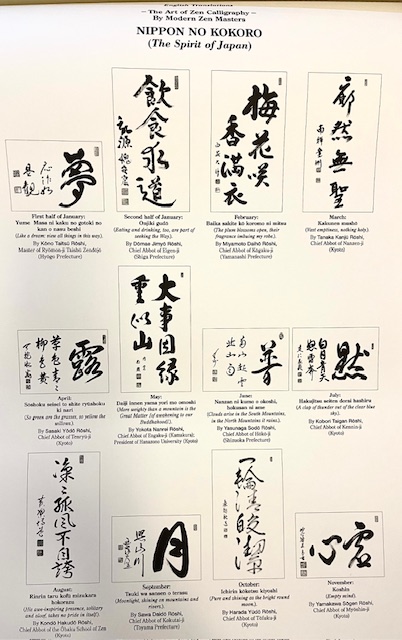 English Translations
– The Art of Zen Calligraphy –
By Modern Zen Masters
NIPPON NO KOKORO
(The Spirit of Japan)
夢
First half of January:
Yume Masa ni kaku no gotoki no
kan o nasu beshi
(Like a dream; view all things in this way).
By Kōno Taitsū Rōshi,
Master of Ryōmon-ji Taishi Zendōjō
(Hyōgo Prefecture)
飲食求道
Second half of January:
Onjiki gudō
(Eating and drinking, too, are part of
seeking the Way).
By Dōmae Jimyō Rōshi,
Chief Abbot of Eigen-ji
(Shiga Prefecture)
梅花咲
香滿衣
February:
Baika sakite kō koromo ni mitsu
(The plum blossoms open, their
fragrance imbuing my robe.).
By Miyamoto Daihō Rōshi,
Chief Abbot of Kōgaku-ji
(Yamanashi Prefecture)
廓然無聖
March:
Kakunen mushō
(Vast emptiness, nothing holy).
By Tanaka Kanjū Rōshi,
Chief Abbot of Nanzen-ji
(Kyoto)
露
草色青々
柳色黄
April:
Sōshoku seisei to shite ryūshoku
ki nari
(So green are the grasses, so yellow the
willows.)
By Sasaki Yōdō Rōshi,
Chief Abbot of Tenryū-ji
(Kyoto)
大事因縁
重似山
May:
Daiji innen yama yori mo omoshi
(More weighty than a mountain is the
Great Matter [of awakening to our
Buddhahood].).
By Yokota Nanrei Rōshi,
Chief Abbot of Engaku-ji (Kamakura);
President of Hanazono University (Kyoto)
普
南山起雲
北山
June:
Nanzan ni kumo o okoshi,
hokusan ni ame
(Clouds arise in the South Mountains,
in the North Mountains it rains).
By Yasunaga Sodō Rōshi,
Chief Abbot of Hōkō-ji
(Shizuoka Prefecture)
黙
白日青天
怒雷奔
July:
Hakujitsu seiten dorai hashiru
(A clap of thunder out of the clear blue
sky).
By Kobori Taigan Rōshi,
Chief Abbot of Kennin-ji
(Kyoto)
凛々孤風不自誇
August:
Rinrin taru kofū mizukara
hokorazu
(His awe-inspiring presence, solitary
and aloof, takes no pride in itself).
By Kondō Hakudō Rōshi,
Chief Abbot of the Ōbaku School of Zen
(Kyoto)
月
照山川
September:
Tsuki wa sansen o terasu
(Moonlight, shining on mountains and
rivers).
By Sawa Daidō Rōshi,
Chief Abbot of Kokutai-ji
(Toyama Prefecture)
一輪清皎潔
October:
Ichirin kōketsu kiyoshi
(Pure and shining as the bright round
moon.).
By Harada Yūdō Rōshi,
Chief Abbot of Tōfuku-ji
(Kyoto)
虚心
November:
Koshin
(Empty mind).
By Yamakawa Sōgen Rōshi,
Chief Abbot of Myōshin-ji
(Kyoto)